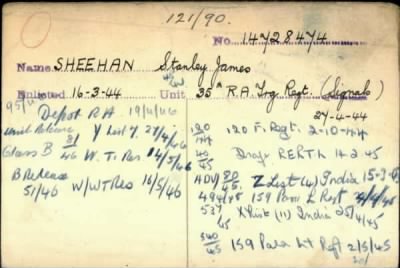 121/90.
No. 14728474
Name SHEEHAN Stanley James
Enlisted 16-3-44 Unit 35th R.A. Trg. Regt. (Signals)
27-4-44
95/46 Depot R.A. 19/4/46
Unit Release Y List 27/4/46
Class B 31/46 W.T. Res 14/5/46
B Release 51/46 W/WT Res 16/5/46
120/44 120 F. Regt. 2-10-44
40/45 Draft RERTH 14-2-45
ADV 80/45 Z List (4) India 15-3-45
494/45 159 Para Lt Regt 4/4/45
537/45 X list (11) India 25/4/45
540/45 159 Para Lt Regt 2/5/45